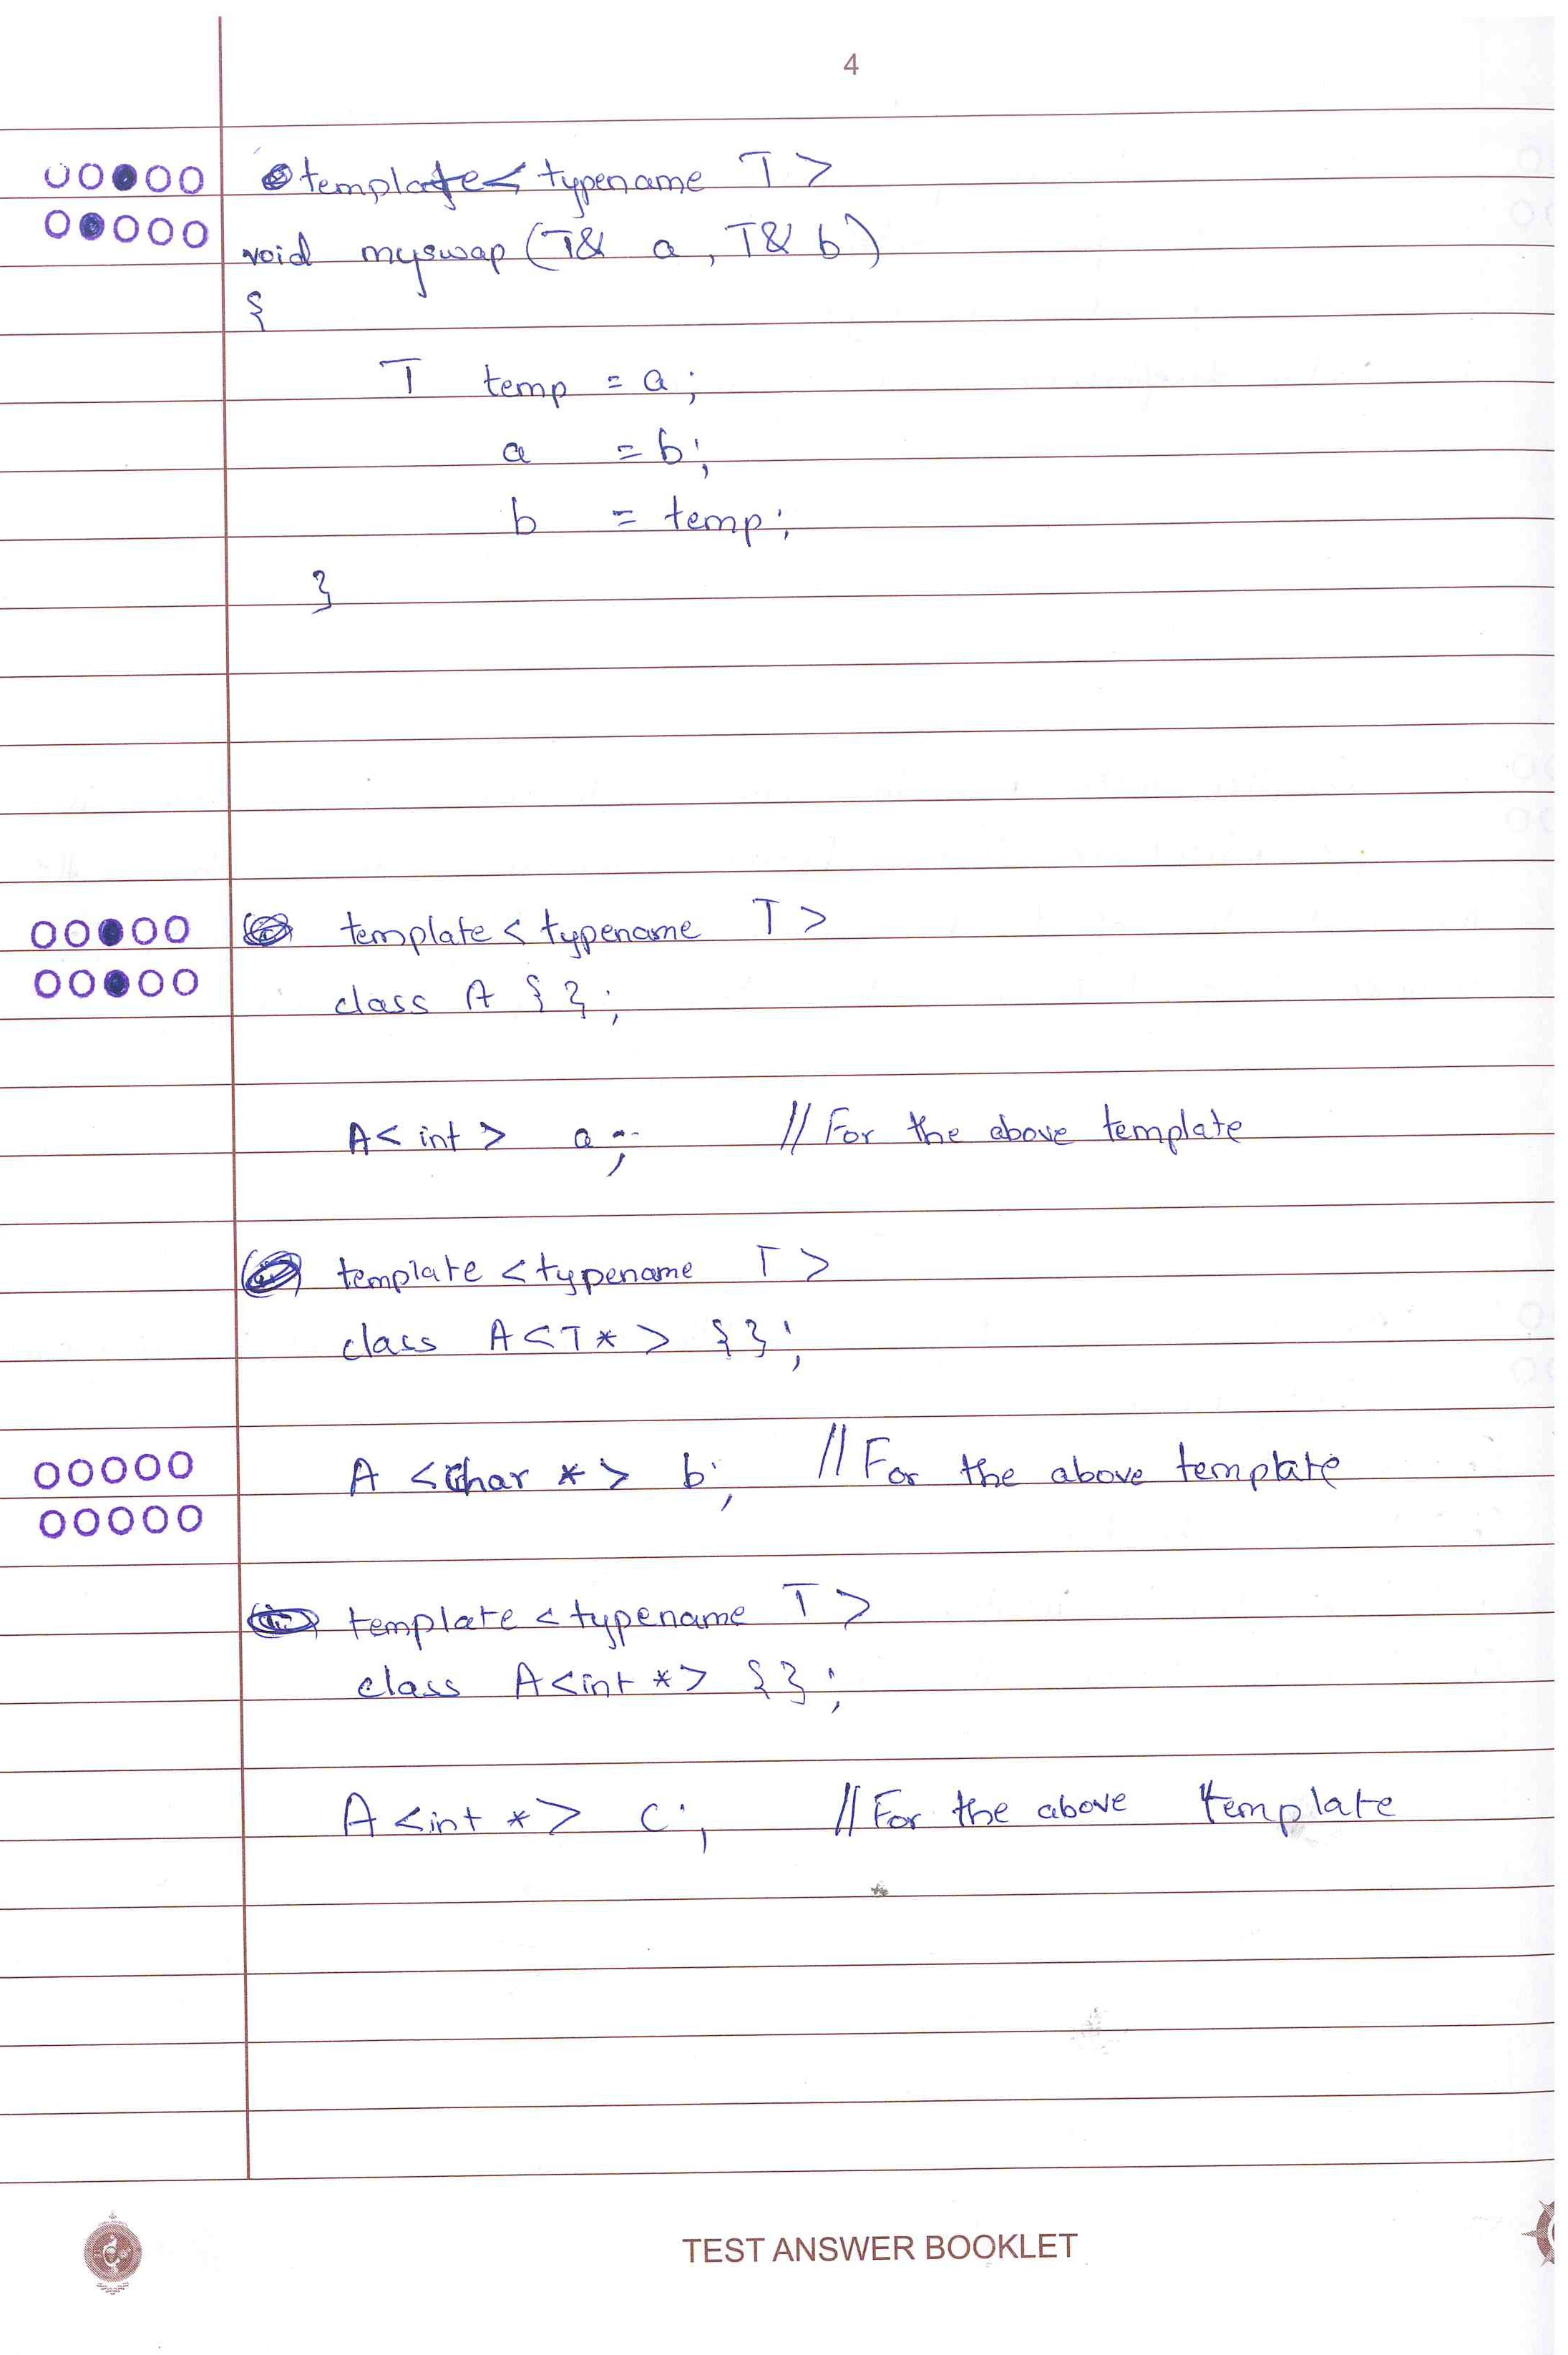 4
template< typename T >
void myswap (T& a , T& b )
{
T temp = a ;
a = b ;
b = temp ;
}
template < typename T >
class A { } ;
A< int > a ; // For the above template
template < typename T >
class A < T * > { } ;
A < char * > b ; // For the above template
template < typename T >
class A < int * > { } ;
A < int * > c ; // For the above template
TEST ANSWER BOOKLET